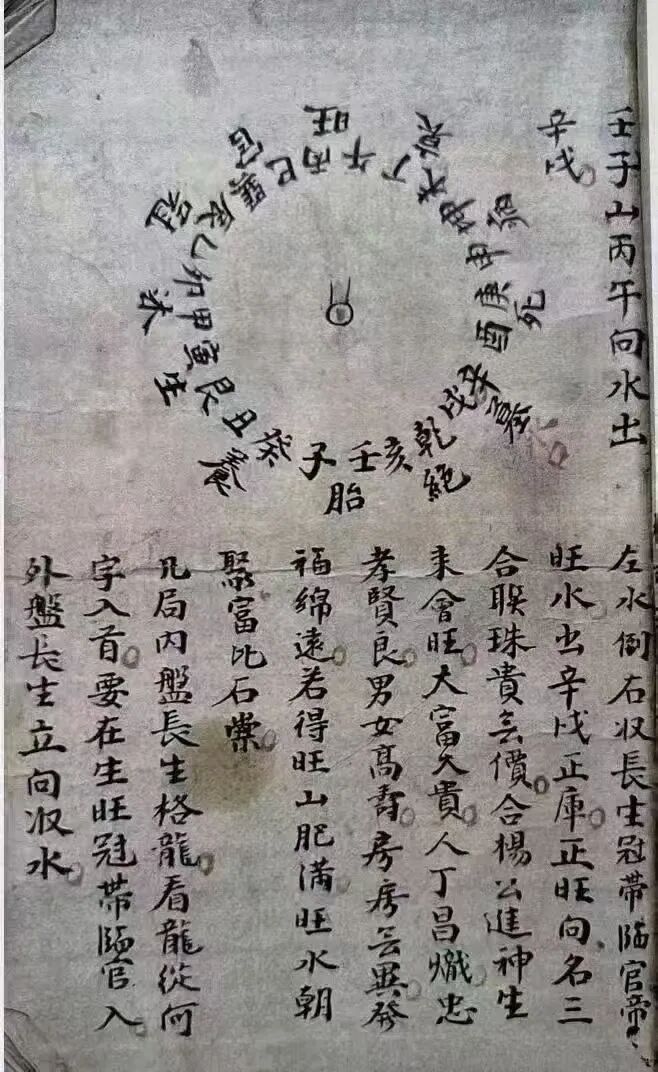 壬子山丙午向水出
辛戌。
旺
衰
病
死
墓
絕
胎
養
生
沐
冠
官
午丁未坤申庚酉辛戌乾亥壬子癸丑艮寅甲卯乙辰巽巳丙
左水倒右収長生冠帶臨官帝
旺水。出辛戌正庫。正旺向。名三
合聯珠貴无價。合楊公進神生
來會旺。大富久貴。人丁昌熾。忠
孝賢良。男女高壽。房房无異。發
福綿遠。若得旺山肥滿。旺水朝
聚。富比石崇。
凡局內盤長生格龍。看龍從何
字入首。要在生旺冠帶臨官入。
外盤長生立向収水。